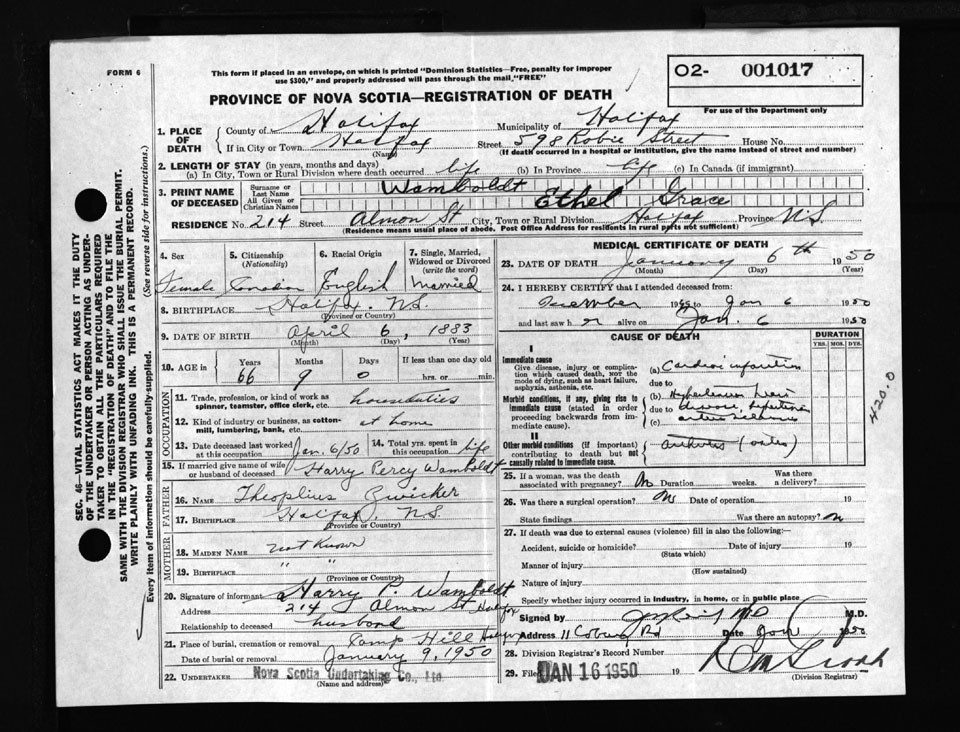 FORM 6
This form if placed in an envelope, on which is printed "Dominion Statistics—Free, penalty for improper
use $300," and properly addressed will pass through the mail, "FREE"
O2- 001017
For use of the Department only
PROVINCE OF NOVA SCOTIA—REGISTRATION OF DEATH
1. PLACE OF DEATH
County of Halifax Municipality of Halifax
If in City or Town Halifax Street 598 Robie Street House No.
(Name) (If death occurred in a hospital or institution, give the name instead of street and number)
2. LENGTH OF STAY (in years, months and days)
(a) In City, Town or Rural Division where death occurred life (b) In Province life (c) In Canada (if immigrant)
3. PRINT NAME OF DECEASED
Surname or Last Name Wamboldt
All Given or Christian Names Ethel Grace
RESIDENCE No. 214 Street Almon St City, Town or Rural Division Halifax Province N.S.
(Residence means usual place of abode. Post Office Address for residents in rural parts not sufficient)
4. Sex 5. Citizenship (Nationality) 6. Racial Origin 7. Single, Married, Widowed or Divorced (write the word)
Female Canadian English Married
8. BIRTHPLACE Halifax. N.S.
(Province or Country)
9. DATE OF BIRTH April 6, 1883
(Month) (Day) (Year)
10. AGE in Years Months Days If less than one day old
66 9 0 hrs. or min.
11. Trade, profession, or kind of work as spinner, teamster, office clerk, etc. houseduties
12. Kind of industry or business, as cotton-mill, lumbering, bank, etc. at home
13. Date deceased last worked at this occupation Jan. 6/50 14. Total yrs. spent in this occupation life
15. If married give name of wife or husband of deceased Harry Percy Wamboldt
FATHER
16. NAME Theophlius Zwicker
17. BIRTHPLACE Halifax, N.S.
(Province or Country)
MOTHER
18. MAIDEN NAME not known
19. BIRTHPLACE " "
(Province or Country)
20. Signature of informant Harry P. Wamboldt
Address 214 Almon St Halifax
Relationship to deceased husband
21. Place of burial, cremation or removal Camp Hill Halifax
Date of burial or removal January 9, 1950
22. UNDERTAKER Nova Scotia Undertaking Co., Ltd.
(Name and address)
MEDICAL CERTIFICATE OF DEATH
23. DATE OF DEATH January 6th 1950
(Month) (Day) (Year)
24. I HEREBY CERTIFY that I attended deceased from:
December 19 to Jan 6 1950
and last saw her alive on Jan. 6 1950
CAUSE OF DEATH
DURATION
YRS. MOS. DYS.
I
Immediate cause
Give disease, injury or complication which caused death, NOT the mode of dying, such as heart failure, asphyxia, asthenia, etc.
(a) Cardiac infarction
due to
Morbid conditions, if any, giving rise to immediate cause (stated in order proceeding backwards from immediate cause).
(b) Hypertensive heart
due to disease,
(c)
II
Other morbid conditions (if important) contributing to death but not causally related to immediate cause.
420.0
25. If a woman, was the death associated with pregnancy? No Duration weeks. Was there a delivery?
26. Was there a surgical operation? No Date of operation 19
State findings Was there an autopsy? no
27. If death was due to external causes (violence) fill in also the following:—
Accident, suicide or homicide? Date of injury 19
(State which)
Manner of injury
(How sustained)
Nature of injury
Specify whether injury occurred in industry, in home, or in public place
Signed by M.D. M.D.
Address 11 Coburg Rd Date Jan 1950
28. Division Registrar's Record Number
29. Filed JAN 16 1950 19
(Division Registrar)
SEC. 46—VITAL STATISTICS ACT MAKES IT THE DUTY
OF THE UNDERTAKER OR PERSON ACTING AS UNDER-
TAKER TO OBTAIN ALL THE PARTICULARS REQUIRED
IN THE "REGISTRATION OF DEATH" AND TO FILE THE
SAME WITH THE DIVISION REGISTRAR WHO SHALL ISSUE THE BURIAL PERMIT.
WRITE PLAINLY WITH UNFADING INK. THIS IS A PERMANENT RECORD.
Every item of information should be carefully supplied. (See reverse side for instructions.)